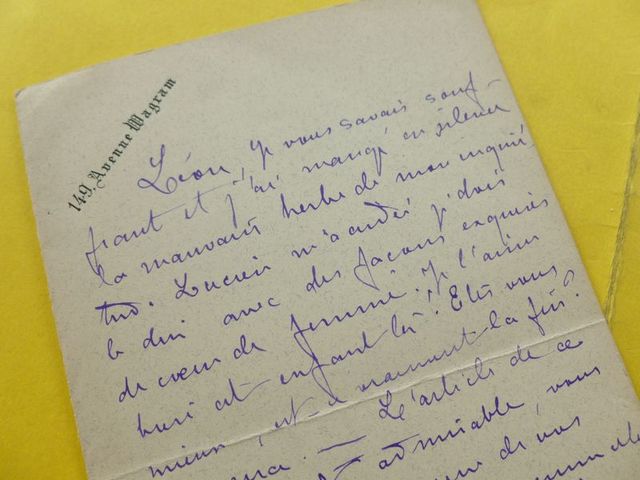 149, Avenue Wagram
Léon, je vous savais souf-
frant et j'ai mangé en silence
la mauvaise herbe de mon inquié
tude. Lucien m'a aidé, je dois
le dire avec des façons exquises
de cœur de femme. Je l'aime
bien cet enfant là! Êtes vous
mieux, est-ce vraiment la fin?
L'article de ce
admirable, vous
de vos